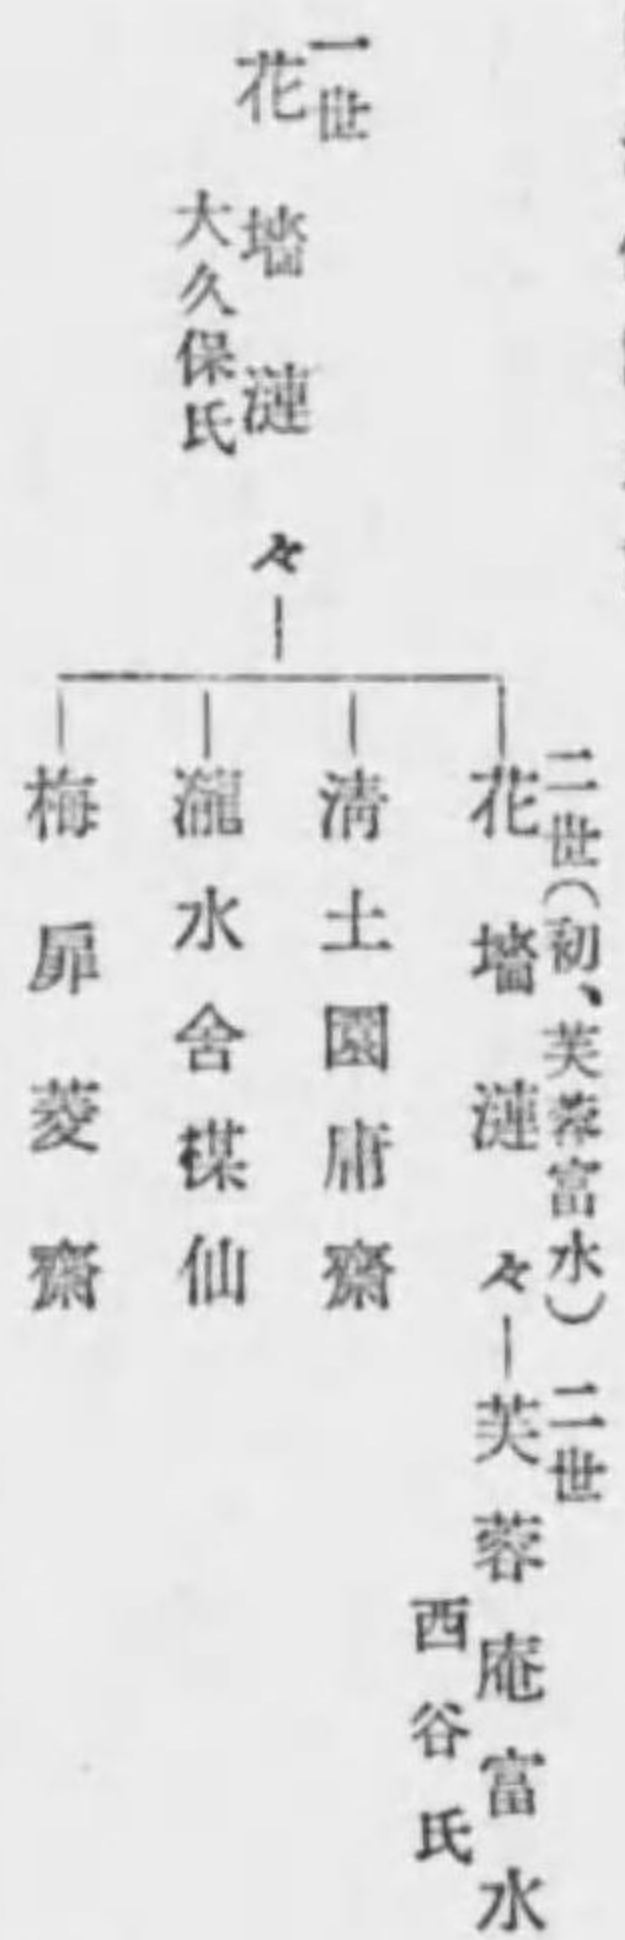 一世
花墻漣々
大久保氏
二世（初、芙蓉富水）
花墻漣々
二世
芙蓉庵富水
西谷氏
淸土園庸齋
瀧水舍楳仙
梅扉菱齋